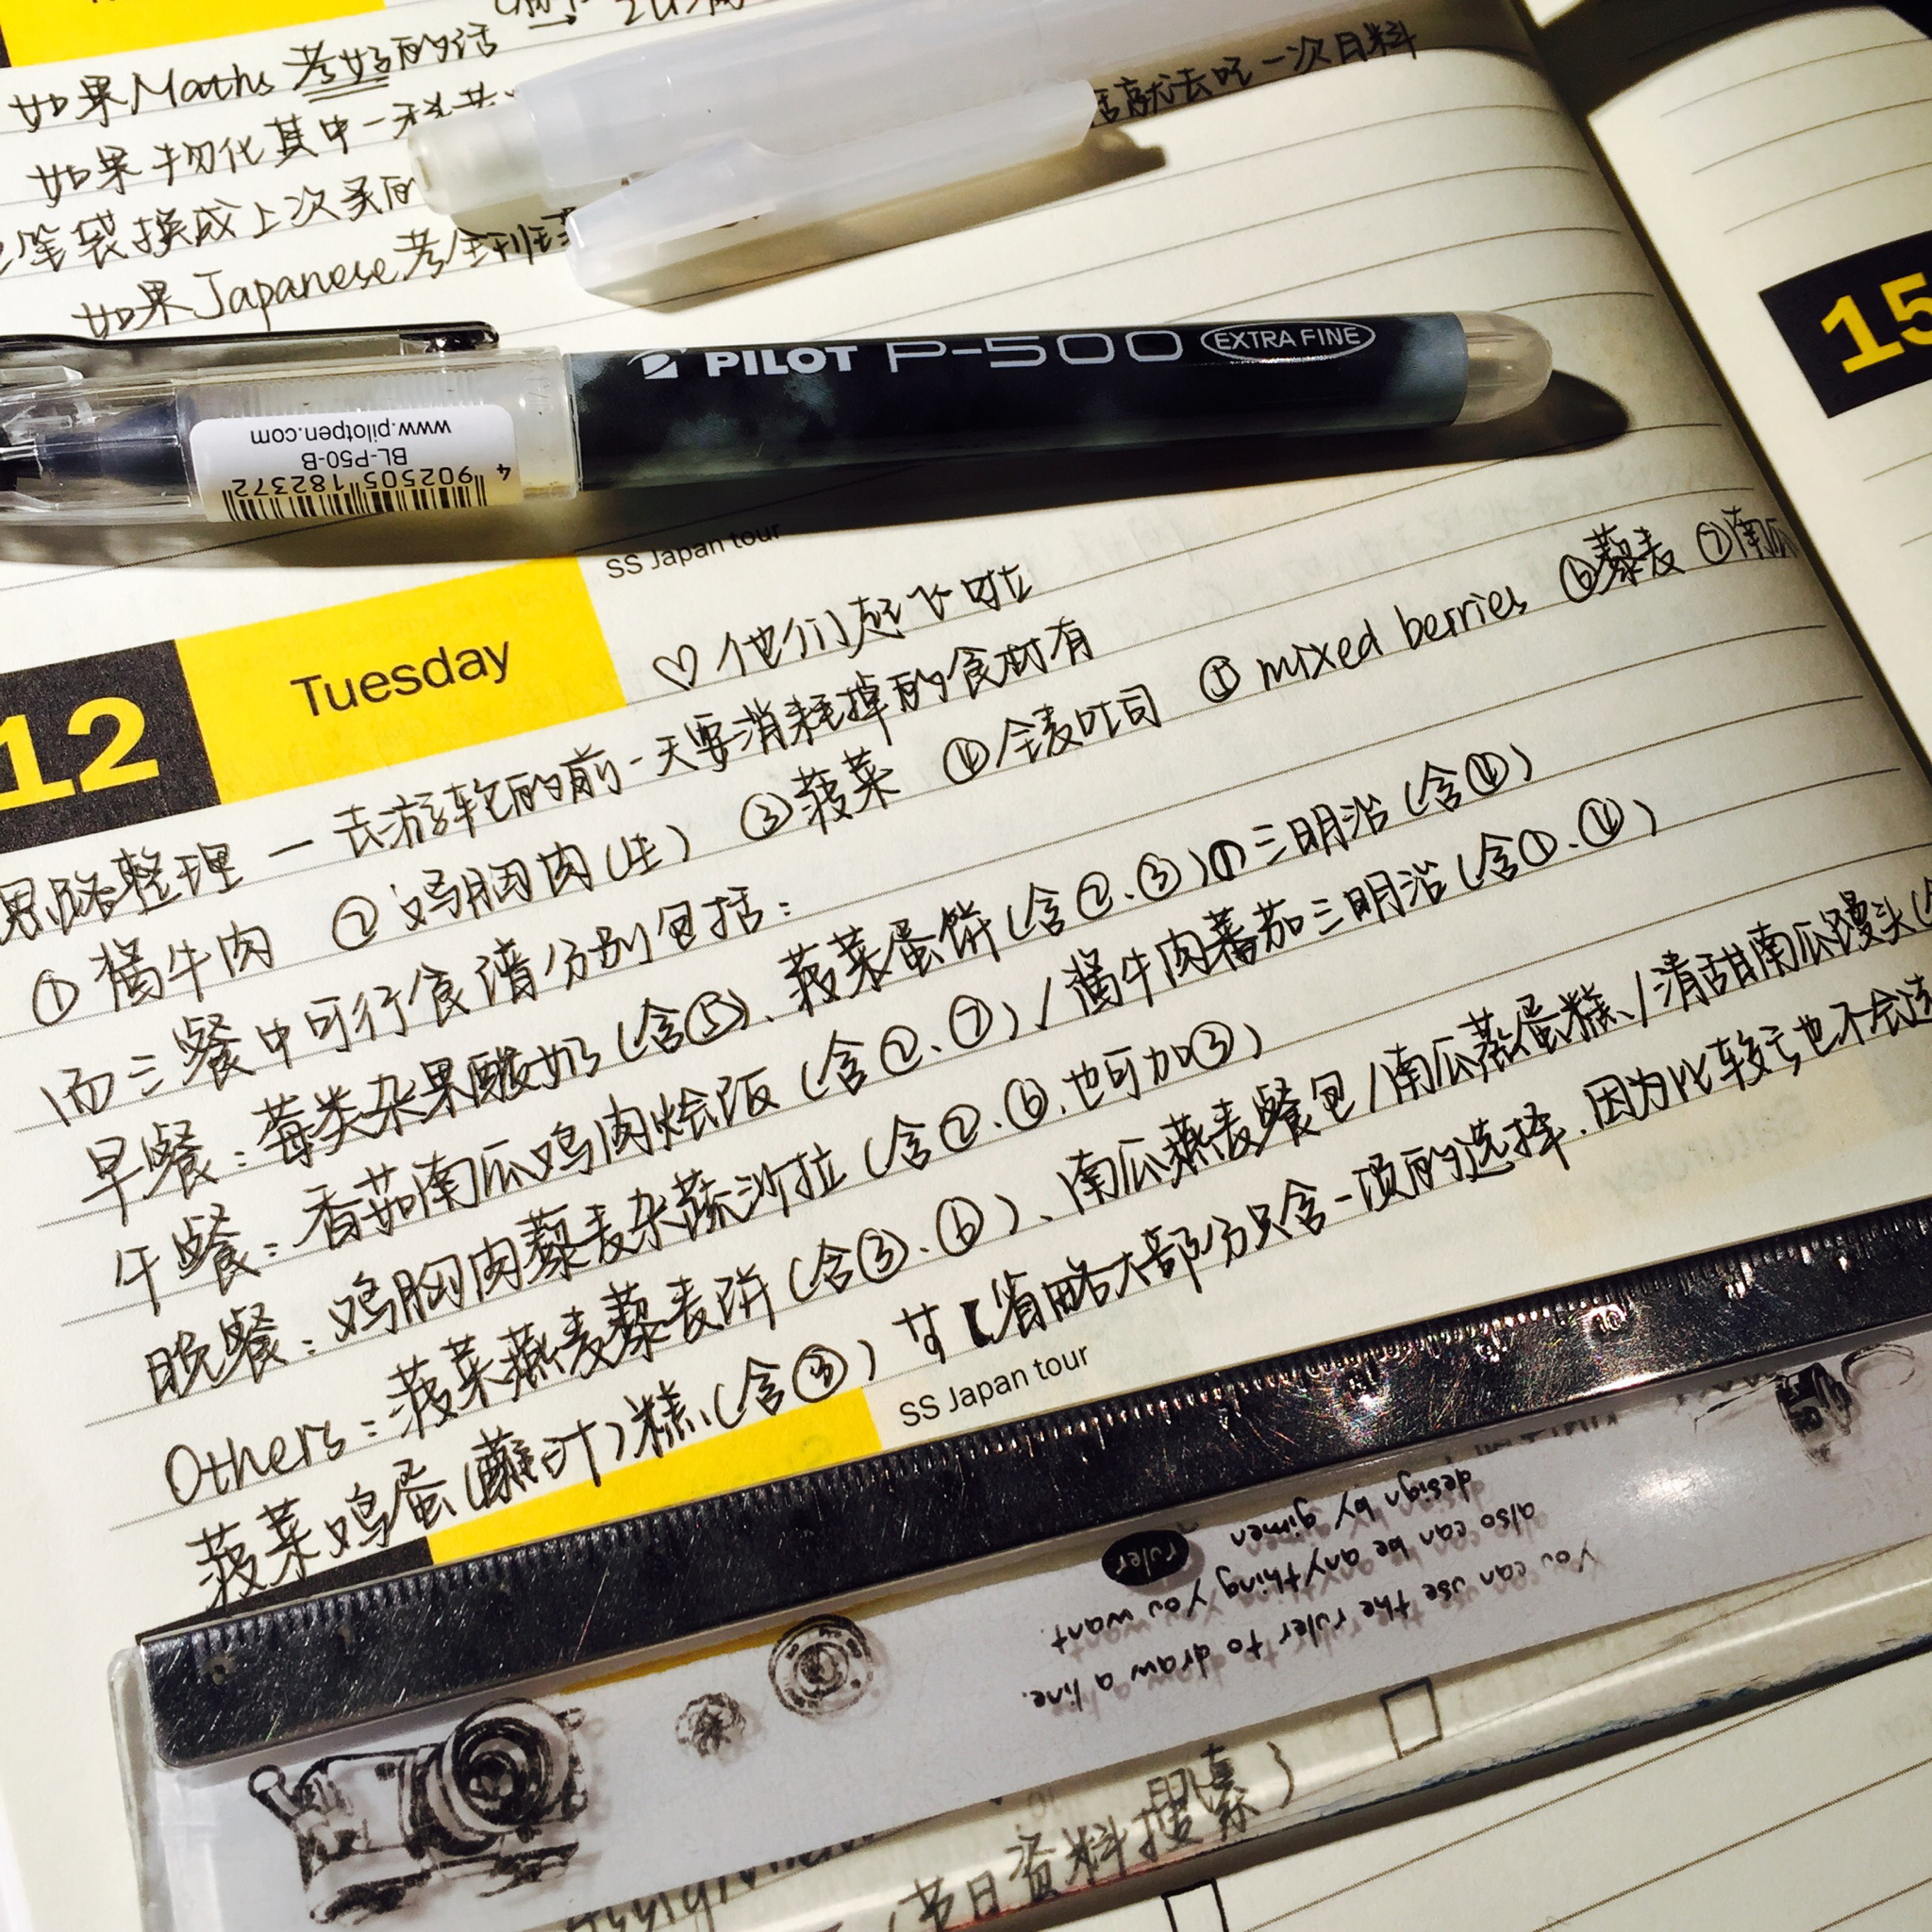 如果Maths考好的话 →
如果物化其中一科 话就去吃一次日料
笔袋换成上次买的
如果Japanese考
PILOT P-500 EXTRA FINE
www.pilotpen.com
BL-P50-B
4 902505 182372
SS Japan tour
15
12 Tuesday ♡他们起飞啦
思路整理 — 去游轮的前一天要消耗掉的食材有
①酱牛肉 ②鸡胸肉(生) ③菠菜 ④全麦吐司 ⑤mixed berries ⑥藜麦 ⑦南瓜
而三餐中可行食谱分别包括：
早餐：莓类杂果酸奶(含⑤)、菠菜蛋饼(含②、③)的三明治(含④)
午餐：香茄南瓜鸡肉烩饭(含②、⑦)/酱牛肉蕃茄三明治(含①、④)
晚餐：鸡胸肉藜麦杂蔬沙拉(含②、⑥、也可加③)
Others：菠菜燕麦藜麦饼(含③、⑥)、南瓜燕麦餐包/南瓜蒸蛋糕/清甜南瓜馒头
菠菜鸡蛋(蘸汁)糕(含③) 【省略大部分只含一项的选择.因为比较
SS Japan tour
Saturday
You can use the ruler to draw a line.
also can be anything you want.
design by gimen
ruler
(节日资料搜索) □